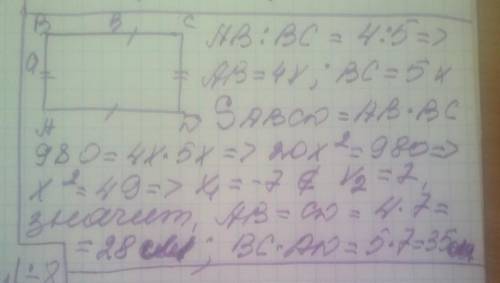 B в C
a
A D
AB : BC = 4 : 5 =>
AB = 4x ; BC = 5x
SABCD = AB · BC
980 = 4x · 5x => 20x² = 980 =>
x² = 49 => x₁ = -7 ∉ x₂ = 7,
значит, AB = CD = 4 · 7 =
= 28 см ; BC = AD = 5 · 7 = 35 см